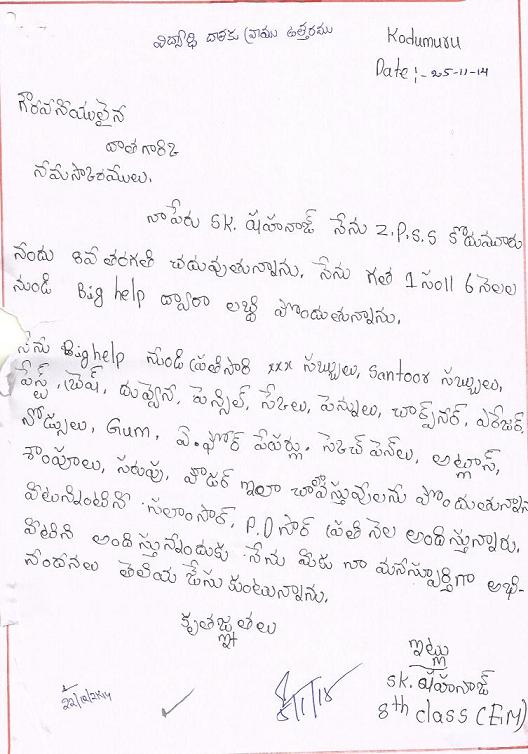 విద్యార్థి దాతకు వ్రాయు ఉత్తరము
Kodumuru
Date :- 25-11-14
గౌరవనీయులైన
దాత గారికి
నమస్కారములు.
నా పేరు SK. షహనాజ్ నేను Z.P.S.S కొడుమూరు
నందు 8వ తరగతి చదువుతున్నాను. నేను గత 1 సం|| 6 నెలల
నుండి Big help ద్వారా లబ్ధి పొందుతున్నాను.
నేను Big help నుండి ప్రతిసారి xxx సబ్బులు, Santoor సబ్బులు,
పేస్ట్, బ్రష్, దువ్వెన, పెన్సిల్, స్కేలు, పెన్నులు, చార్ప్‌నర్, ఎరేజర్,
నోట్సులు, Gum, ఏ.ఫోర్ పేపర్లు, స్కెచ్ పెన్‌లు, అట్లాస్,
శాంపూలు, సరుపు, పౌడర్ ఇలా చాలా వస్తువులను పొందుతున్నాను
వీటన్నింటినీ సలాంసార్, P.D సార్ ప్రతి నెల అందిస్తున్నారు.
వీటిని అందిస్తున్నందుకు నేను మీకు నా మనస్ఫూర్తిగా అభి-
నందనలు తెలియ జేసుకుంటున్నాను.
కృతజ్ఞతలు
ఇట్లు
SK. షహనాజ్
8th class (E.M)
22/12/2014